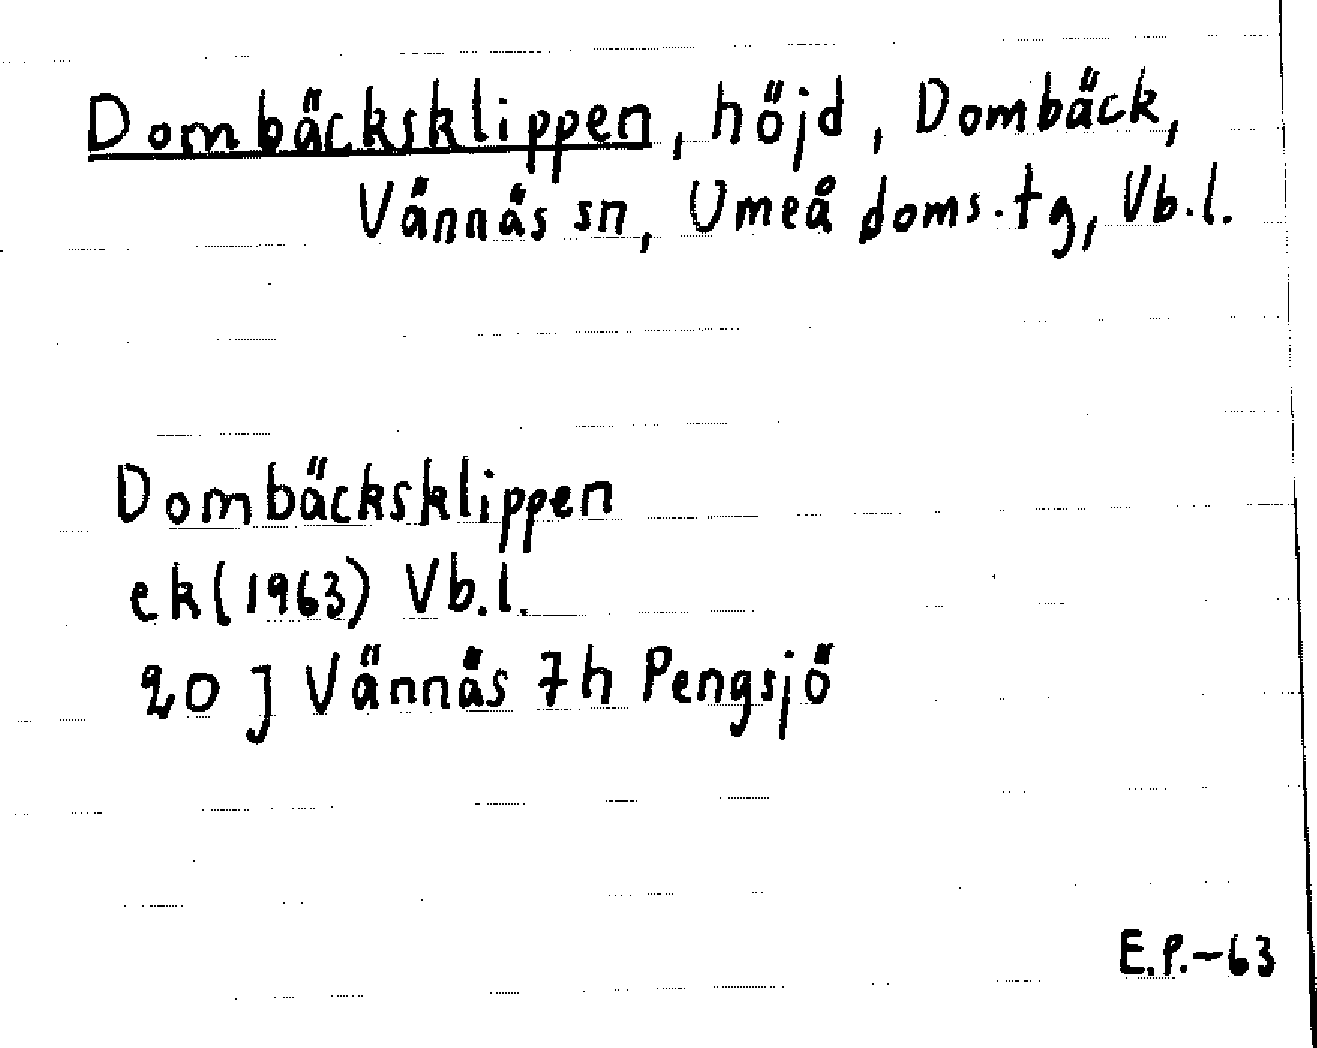 Dombäcksklippen, höjd, Dombäck,
Vännäs sn, Umeå doms.tg, Vb.l.
Dombäcksklippen
ek(1963) Vb.l.
20 J Vännäs 7h Pengsjö
E.P.-63